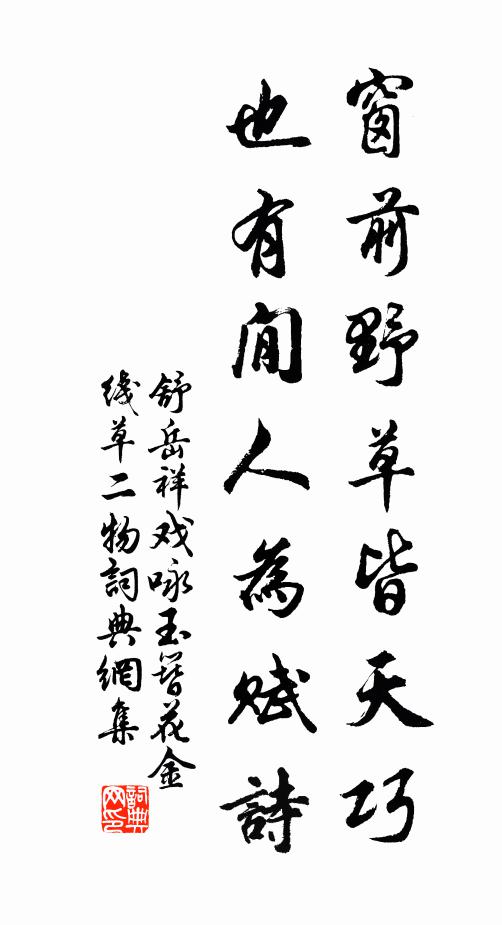 窗前野草皆天巧
也有閒人為賦詩
舒岳祥戏咏玉簪花金
线草二物詞典網集
詞典
网印